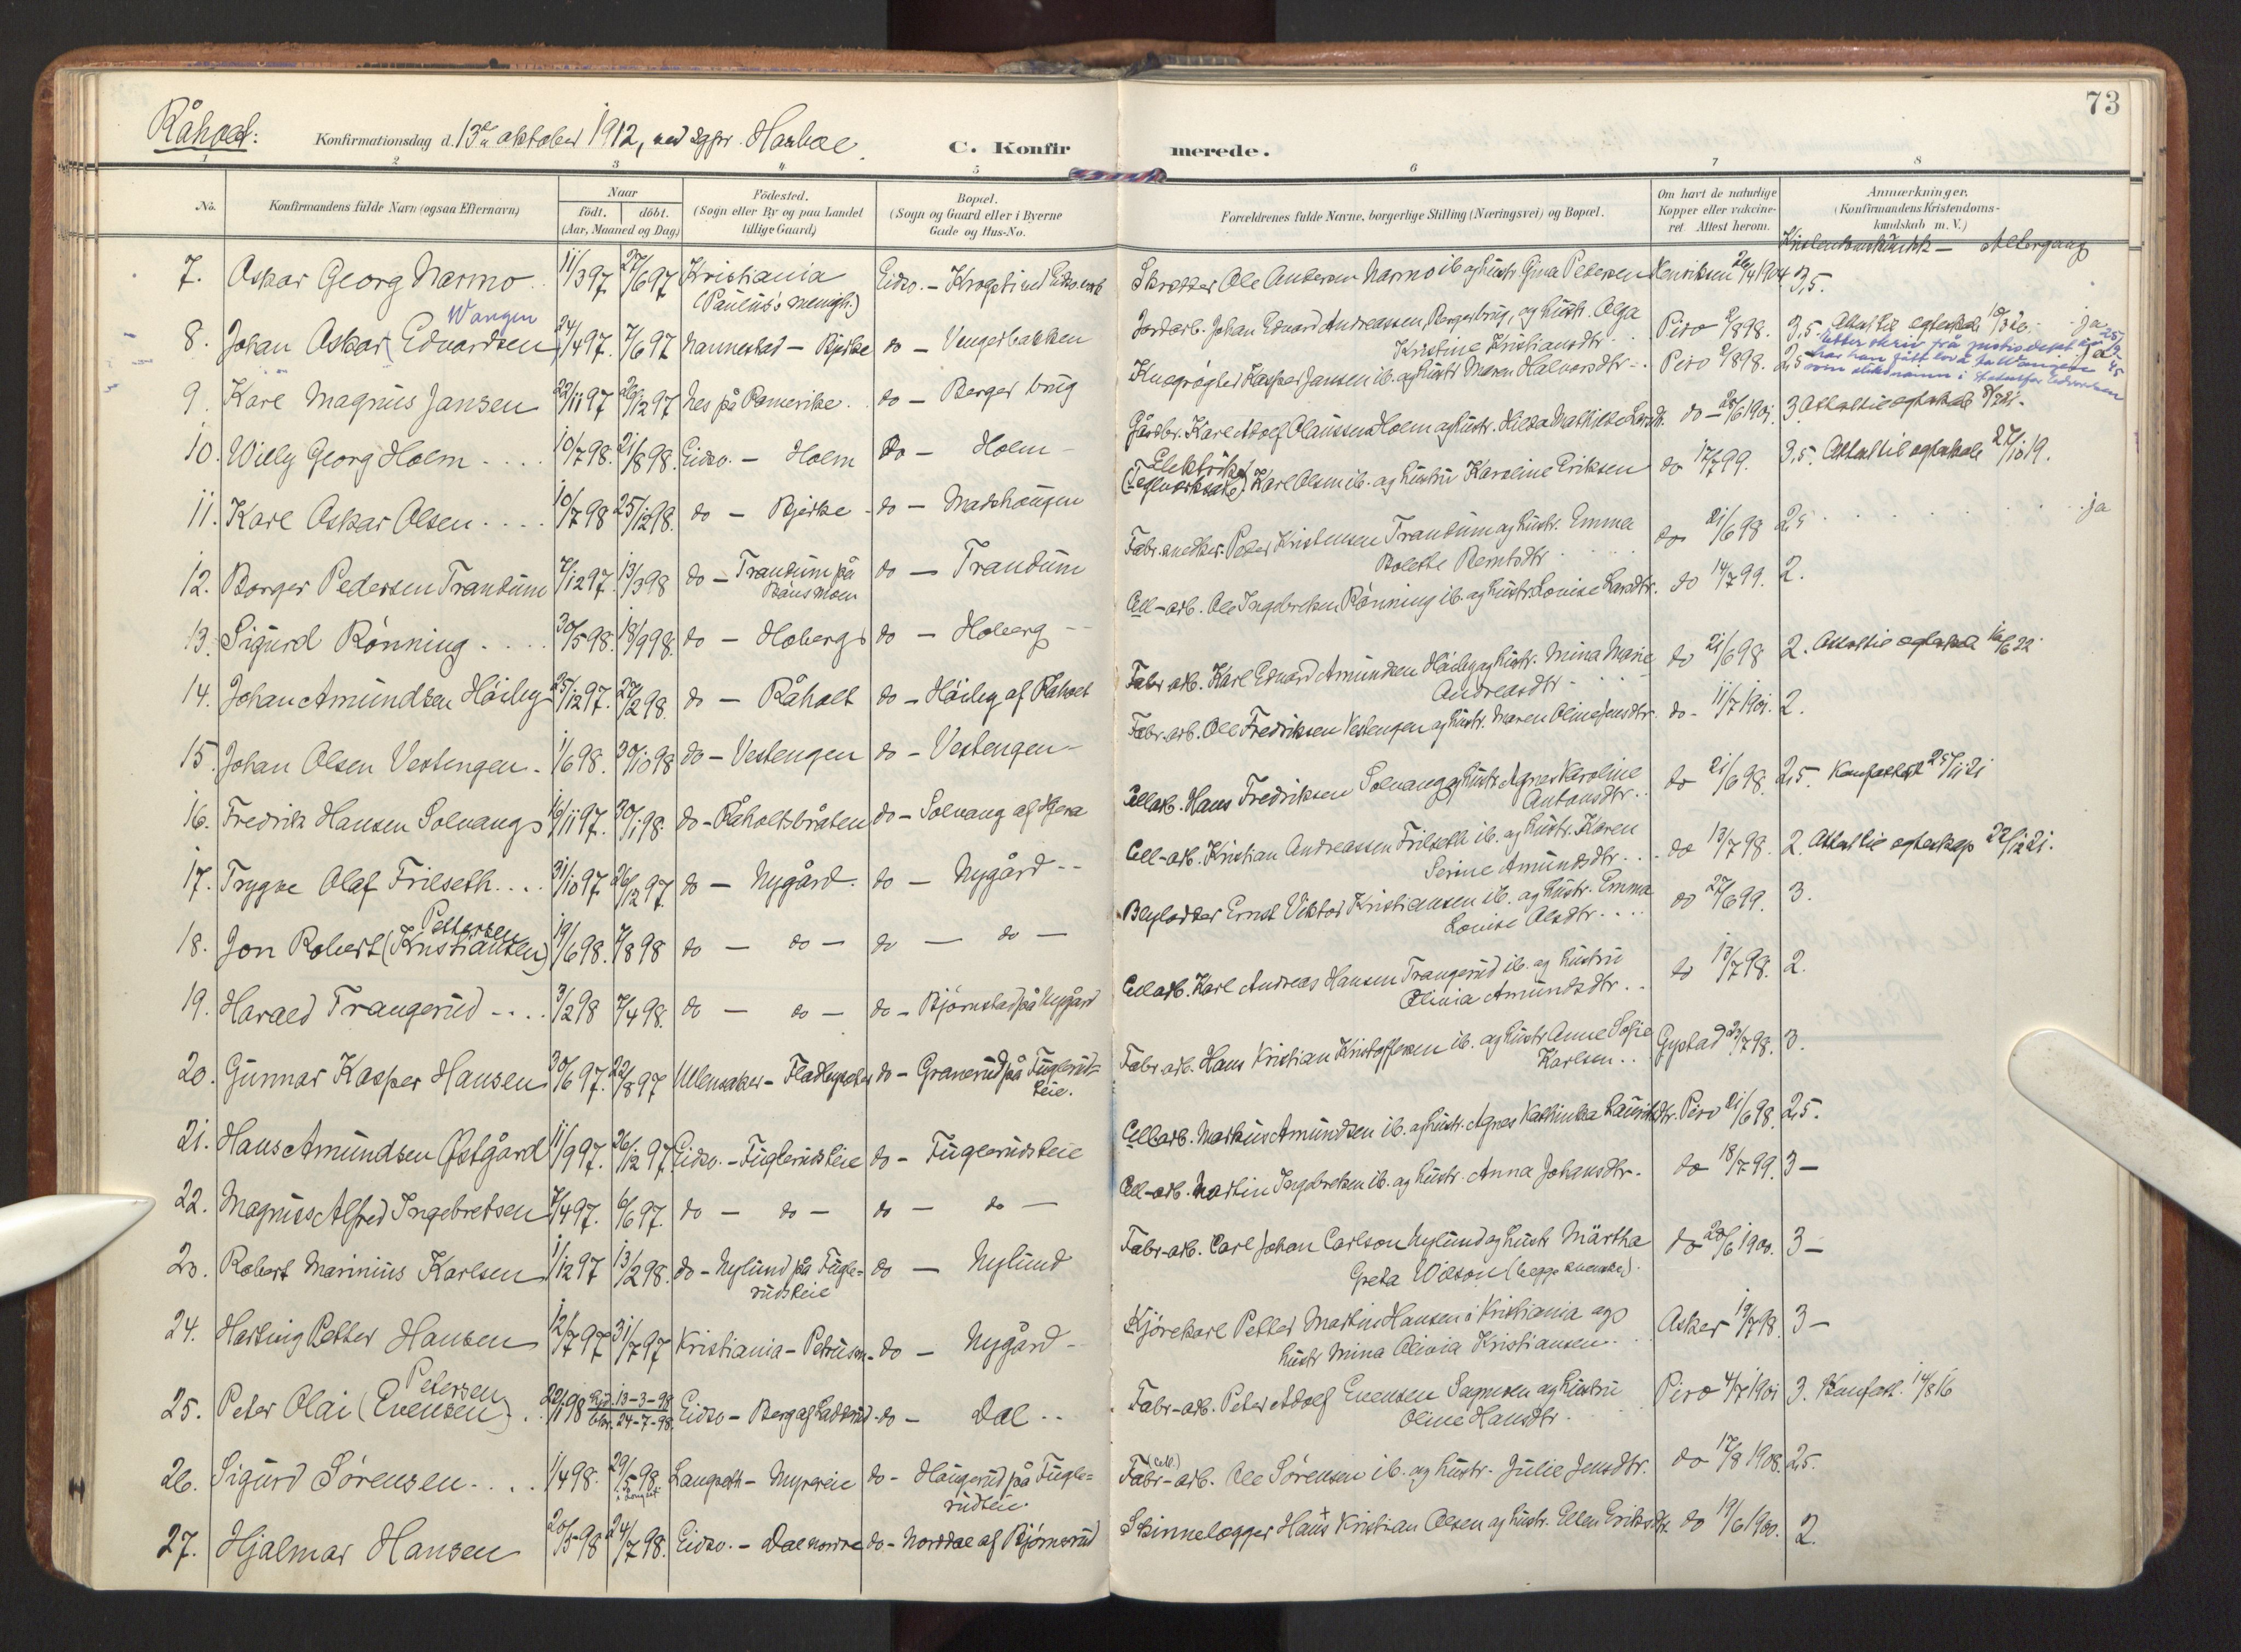 73
Råholt: Konfirmationsdag d. 13de oktober 1912, ved sgpr. Harboe.
C. Konfirmerede.
1 2 3 4 5 6 7 8
No.
Konfirmandens fulde Navn (ogsaa Efternavn)
Naar
født. døbt.
(Aar, Maaned og Dag)
Fødested.
(Sogn eller By og paa Landet
tillige Gaard)
Bopæl.
(Sogn og Gaard eller i Byerne
Gade og Hus-No.
Forældrenes fulde Navne, borgerlige Stilling (Næringsvei) og Bopæl.
Om havt de naturlige
Kopper eller vakcine-
ret Attest herom.
Anmærkninger.
(Konfirmandens Kristendoms-
kundskab m. V.)
Kristendomskundsk – Altergang
7. Oskar Georg Narmo 11/3 97 27/6 97 Kristiania Eidsv. –
(Paulus's menigh.)
Ole Andersen Narmo ib og hustr. Gina Petersen Henriksen 26/4 1904 3,5.
Wangen
8. Johan Oskar (Edvardsen) 24/4 97. 7/6 97 Nannestad – Bjerke do – Vengerbakken
Jordarb. Johan Edvard Andreassen, Bergerbrug, og hustr. Olga
Kristine Kristiansdtr. Piro 2/8 98. 3,5. Attest til ægteskab ja
9. Kåre Magnus Jansen 22/11 97 26/12 97 Nes på Romerike. do – Berger brug
Kasper Jansen ib. og hustr. Maren Halvorsdtr – Piro 2/8 98. 2,5
10. Willy Georg Holm .... 10/7 98. 21/8 98. Eidsv. – Holm do – Holm –
Gårdbr. Karl Adolf Olaussen Holm og hustr. Hilda Mathilde Larsdtr. do – 28/6 1901. 3. Attest til ægteskab
11. Kåre Oskar Olsen .... 10/7 98 25/12 98. do – Bjerke – do – Madshaugen
(Teglverksarb.) Karl Olsen ib. og hustru Karoline Eriksen do 17/7 99. 3,5. Attest til ægteskab 27/10 19.
12. Borger Pedersen Trandum 7/12 97. 13/3 98 do – Trandum på do – Trandum
Bånsmoen
Fabr. snedker. Peder Kristensen Trandum og hustr. Emma do 21/6 98 2,5 ja
Bolette Berntsdtr
13. Sigurd Rønning .... 30/5 98. 18/9 98. do – Hoberg do – Hoberg – –
Cell-arb. Ole Ingebretsen Rønning ib. og hustr. Lovise Larsdtr. do 14/7 99. 2.
14. Johan Amundsen Høiby 25/12 97. 27/2 98. do – Råholt do – Høiby af Råholt
Fabr. arb. Karl Edvard Amundsen Høiby og hustr. Mina Marie do 21/6 98 2. Attest til ægteskab
Andreasdtr –
15. Johan Olsen Vestengen. 1/6 98. 30/10 98 do – Vestengen do – Vestengen –
Fabr. arb. Ole Fredriksen Vestengen og hustr. Maren Oline Jensdtr. do – 11/7 1901. 2.
16. Fredrik Hansen Solvang 16/11 97. 30/1 98. do – Råholtsbråten do – Solvang af Gjera
Cellarb. Hans Fredriksen Solvang og hustr. Agnes Karoline do 21/6 98. 2,5. Konfattest 25/11 21
Antonsdtr..
17. Trygve Olaf Frilseth .... 31/10 97 26/12 97. do – Nygård. do – Nygård – –
Cell-arb. Kristian Andreassen Frilseth ib. og hustr. Karen do 13/7 98. 2. Attest til ægteskap 22/12 21.
Serine Amundsdtr. ..
Pettersen
18. Jon Robert (Kristiansen) 19/6 98. 7/8 98 do – do – do – do –
Ernst Viktor Kristiansen ib. og hustr. Emma do 27/6 99. 3.
Lovise Olsdtr ....
19. Harald Trangerud .... 3/2 98 7/4 98. do – do – do – Bjørnstad på Nygård
Cellarb. Karl Andreas Hansen Trangerud ib. og hustru do 13/7 98. 2.
Olivia Amundsdtr. ..
20. Gunnar Kasper Hansen 30/6 97. 22/8 97 Ullensaker – do – Granerud på Fuglerud-
teie.
Fabr. arb. Hans Kristian Kristoffersen ib. og hustr. Anne Sofie Gystad 23/7 98. 3.
Karlsen ..
21. Hans Amundsen Østgård 11/9 97. 26/12 97. Eidsv. – Fuglerudsteie do – Fuglerudsteie
Cellarb. Markus Amundsen ib. og hustr. Agnes Kathinka Lauritsdtr. Piro 21/6 98. 2,5.
22. Magnus Alfred Ingebretsen 7/4 97. 6/6 97. do – do – do – do –
Cell-arb. Martin Ingebretsen ib. og hustr. Anna Johansdtr. do 18/7 99. 3 –
23. Robert Marinius Karlsen 1/12 97 13/2 98. do – Nylund på Fugle- do – Nylund
rudsteie
Fabr.-arb. Carl Johan Carlson Nylund og hustr. Märtha do 20/6 1900. 3 –
Greta Wilson (begge svensker).
24. Harting Petter Hansen 12/7 97 31/7 97 Kristiania – Petrusm. do – Nygård –
Kjørekarl Petter Martin Hansen i Kristiania og Asker 19/7 98. 3 –
hustr. Mina Olivia Kristiansen.
Petersen
25. Peter Olai (Evensen) . 22/1 98 13-3-98 24-7-98. Eidsv – Berg af do – Dal ..
Fabr.-arb. Peter Adolf Evensen Sagmoen og hustru Piro 4/7 1901 3. Konfatt. 14/8 16
Oline Hansdtr.
26. Sigurd Sørensen .... 1/4 98. 29/5 98. Langseth – Myrereie do – Haugerud på Fugle-
i Langset rudteie.
(Cell.)
Fabr-arb. Ole Sørensen ib. og hustr. Julie Jensdtr. do 17/8 1908. 2,5.
27. Hjalmar Hansen 20/5 98 24/7 98. Eidsv. – Dal nordre do – Norddal af Bjørnerud
Skinnelægger Hans Kristian Olsen og hustr. Ellen Eriksdtr. do 19/6 1900. 2.